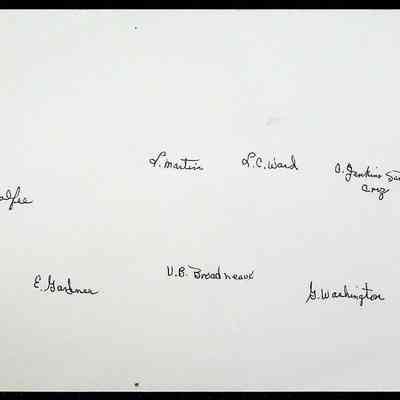 L. Martin
L.C. Ward
O. Jenkins San
Cruz
E. Gardner
V.B. Broadneaux
G. Washington